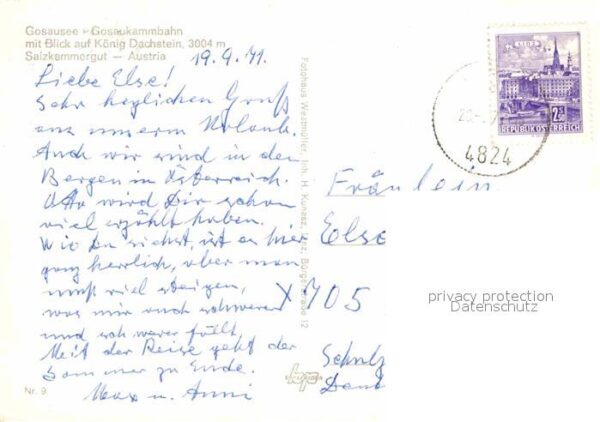 Gosausee - Gosaukammbahn
mit Blick auf König Dachstein, 3004 m
Salzkammergut — Austria
19.9.71.
Liebe Else!
Sehr herzlichen Gruß
aus unserm Urlaub.
Auch wir sind in den
Bergen in Österreich.
Otto wird Dir schon
viel erzählt haben.
Wie Du siehst, ist es hier
ganz herrlich, aber man
muß viel steigen,
was mir auch schwerer
und schwerer fällt.
Mit der Reise geht der
Sommer zu Ende.
Max u. Anni
Nr. 9
Fotohaus Westmüller, Inh. H. Kunasz, Linz, Bürgerstraße 12
LINZ
2S
REPUBLIK ÖSTERREICH
4824
Fräulein
Else
705
privacy protection
Datenschutz